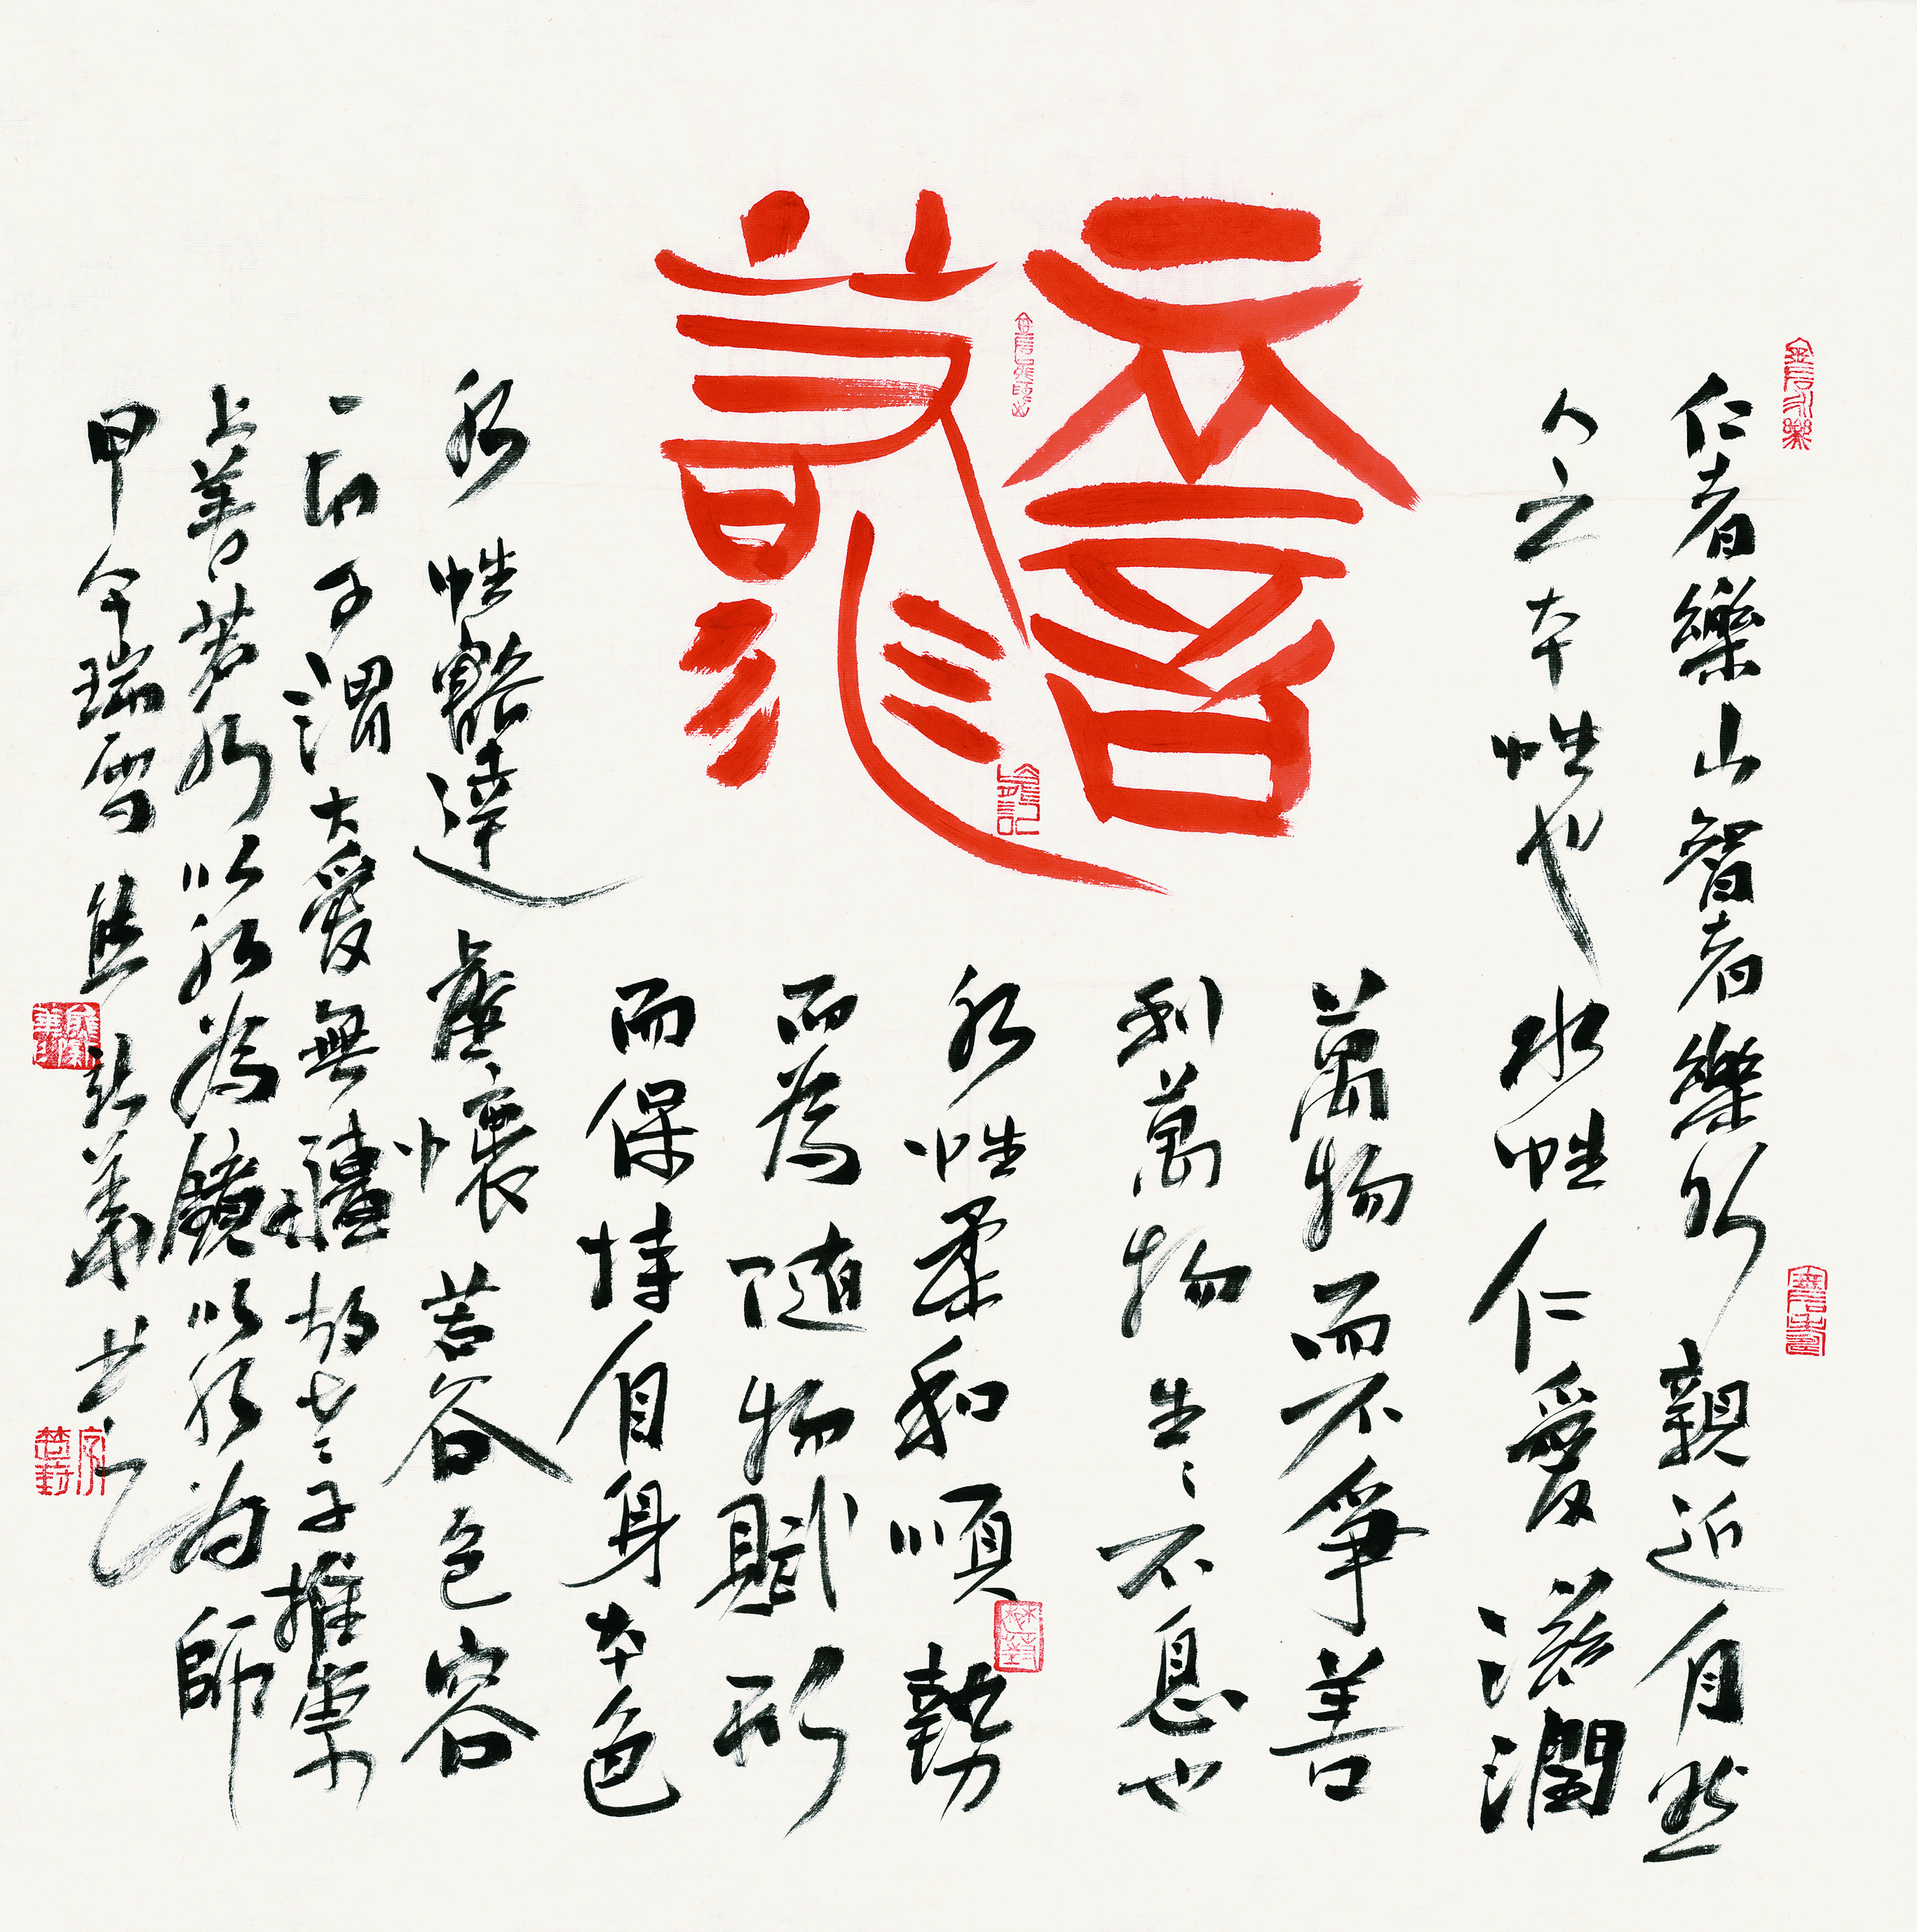 龍
仁者樂山智者樂水親近自然
人之本性也水性仁愛滋潤
萬物而不爭善
利萬物生〻不息也
水性柔和順勢
而為随物賦形
而保持自身本色
水性豁達虛懷若谷包容
一切予謂大愛無疆故老〻子推崇
上善若水以水為鏡以水為師
甲午瑞雪